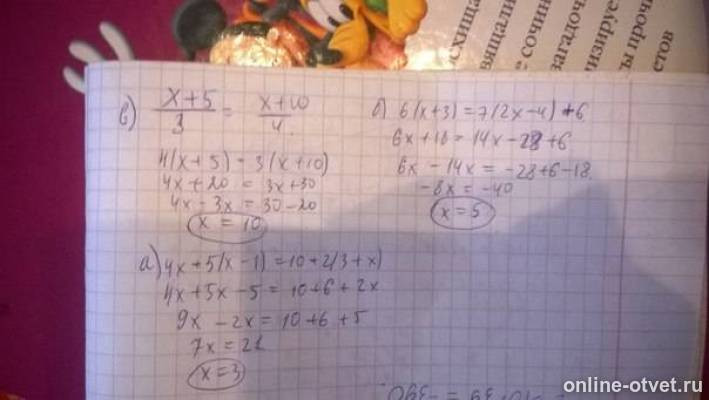 схища
вящали
е сочин
загадоч
лизируе
ы прочи
стов
в) x+5/3 = x+10/4
4(x+5) = 3(x+10)
4x+20 = 3x+30
4x-3x = 30-20
x = 10
б) 6(x+3)=7(2x-4)+6
6x+18=14x-28+6
6x-14x=-28+6-18
-8x=-40
x=5
а) 4x+5(x-1)=10+2(3+x)
4x+5x-5=10+6+2x
9x-2x=10+6+5
7x=21
x=3
online-otvet.ru